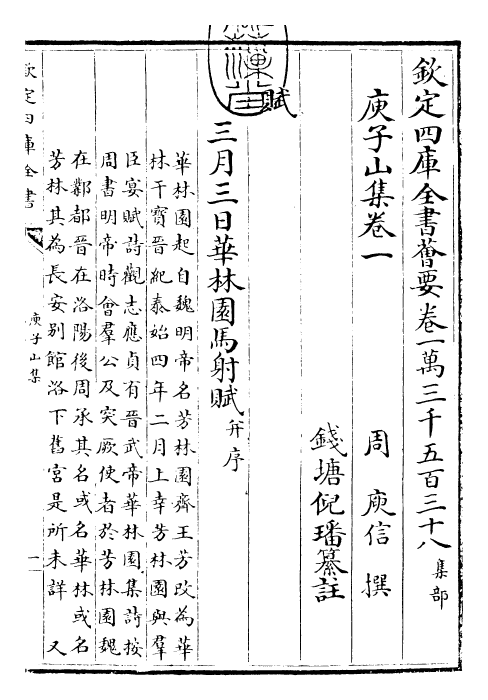 欽定四庫全書薈要卷一萬三千五百三十八 集部
庾子山集卷一
周 庾信 撰
錢塘倪璠纂註
賦
三月三日華林園馬射賦 并序
華林園起自魏明帝名芳林園齊王芳改為華
林干寶晉紀泰始四年二月上幸芳林園與羣
臣宴賦詩觀志應貞有晉武帝華林園集詩按
周書明帝時會羣公及突厥使者於芳林園魏
在鄴都晉在洛陽後周承其名或名華林或名
芳林其為長安别館洛下舊宮是所未詳 又
欽定四庫全書
庾子山集
一